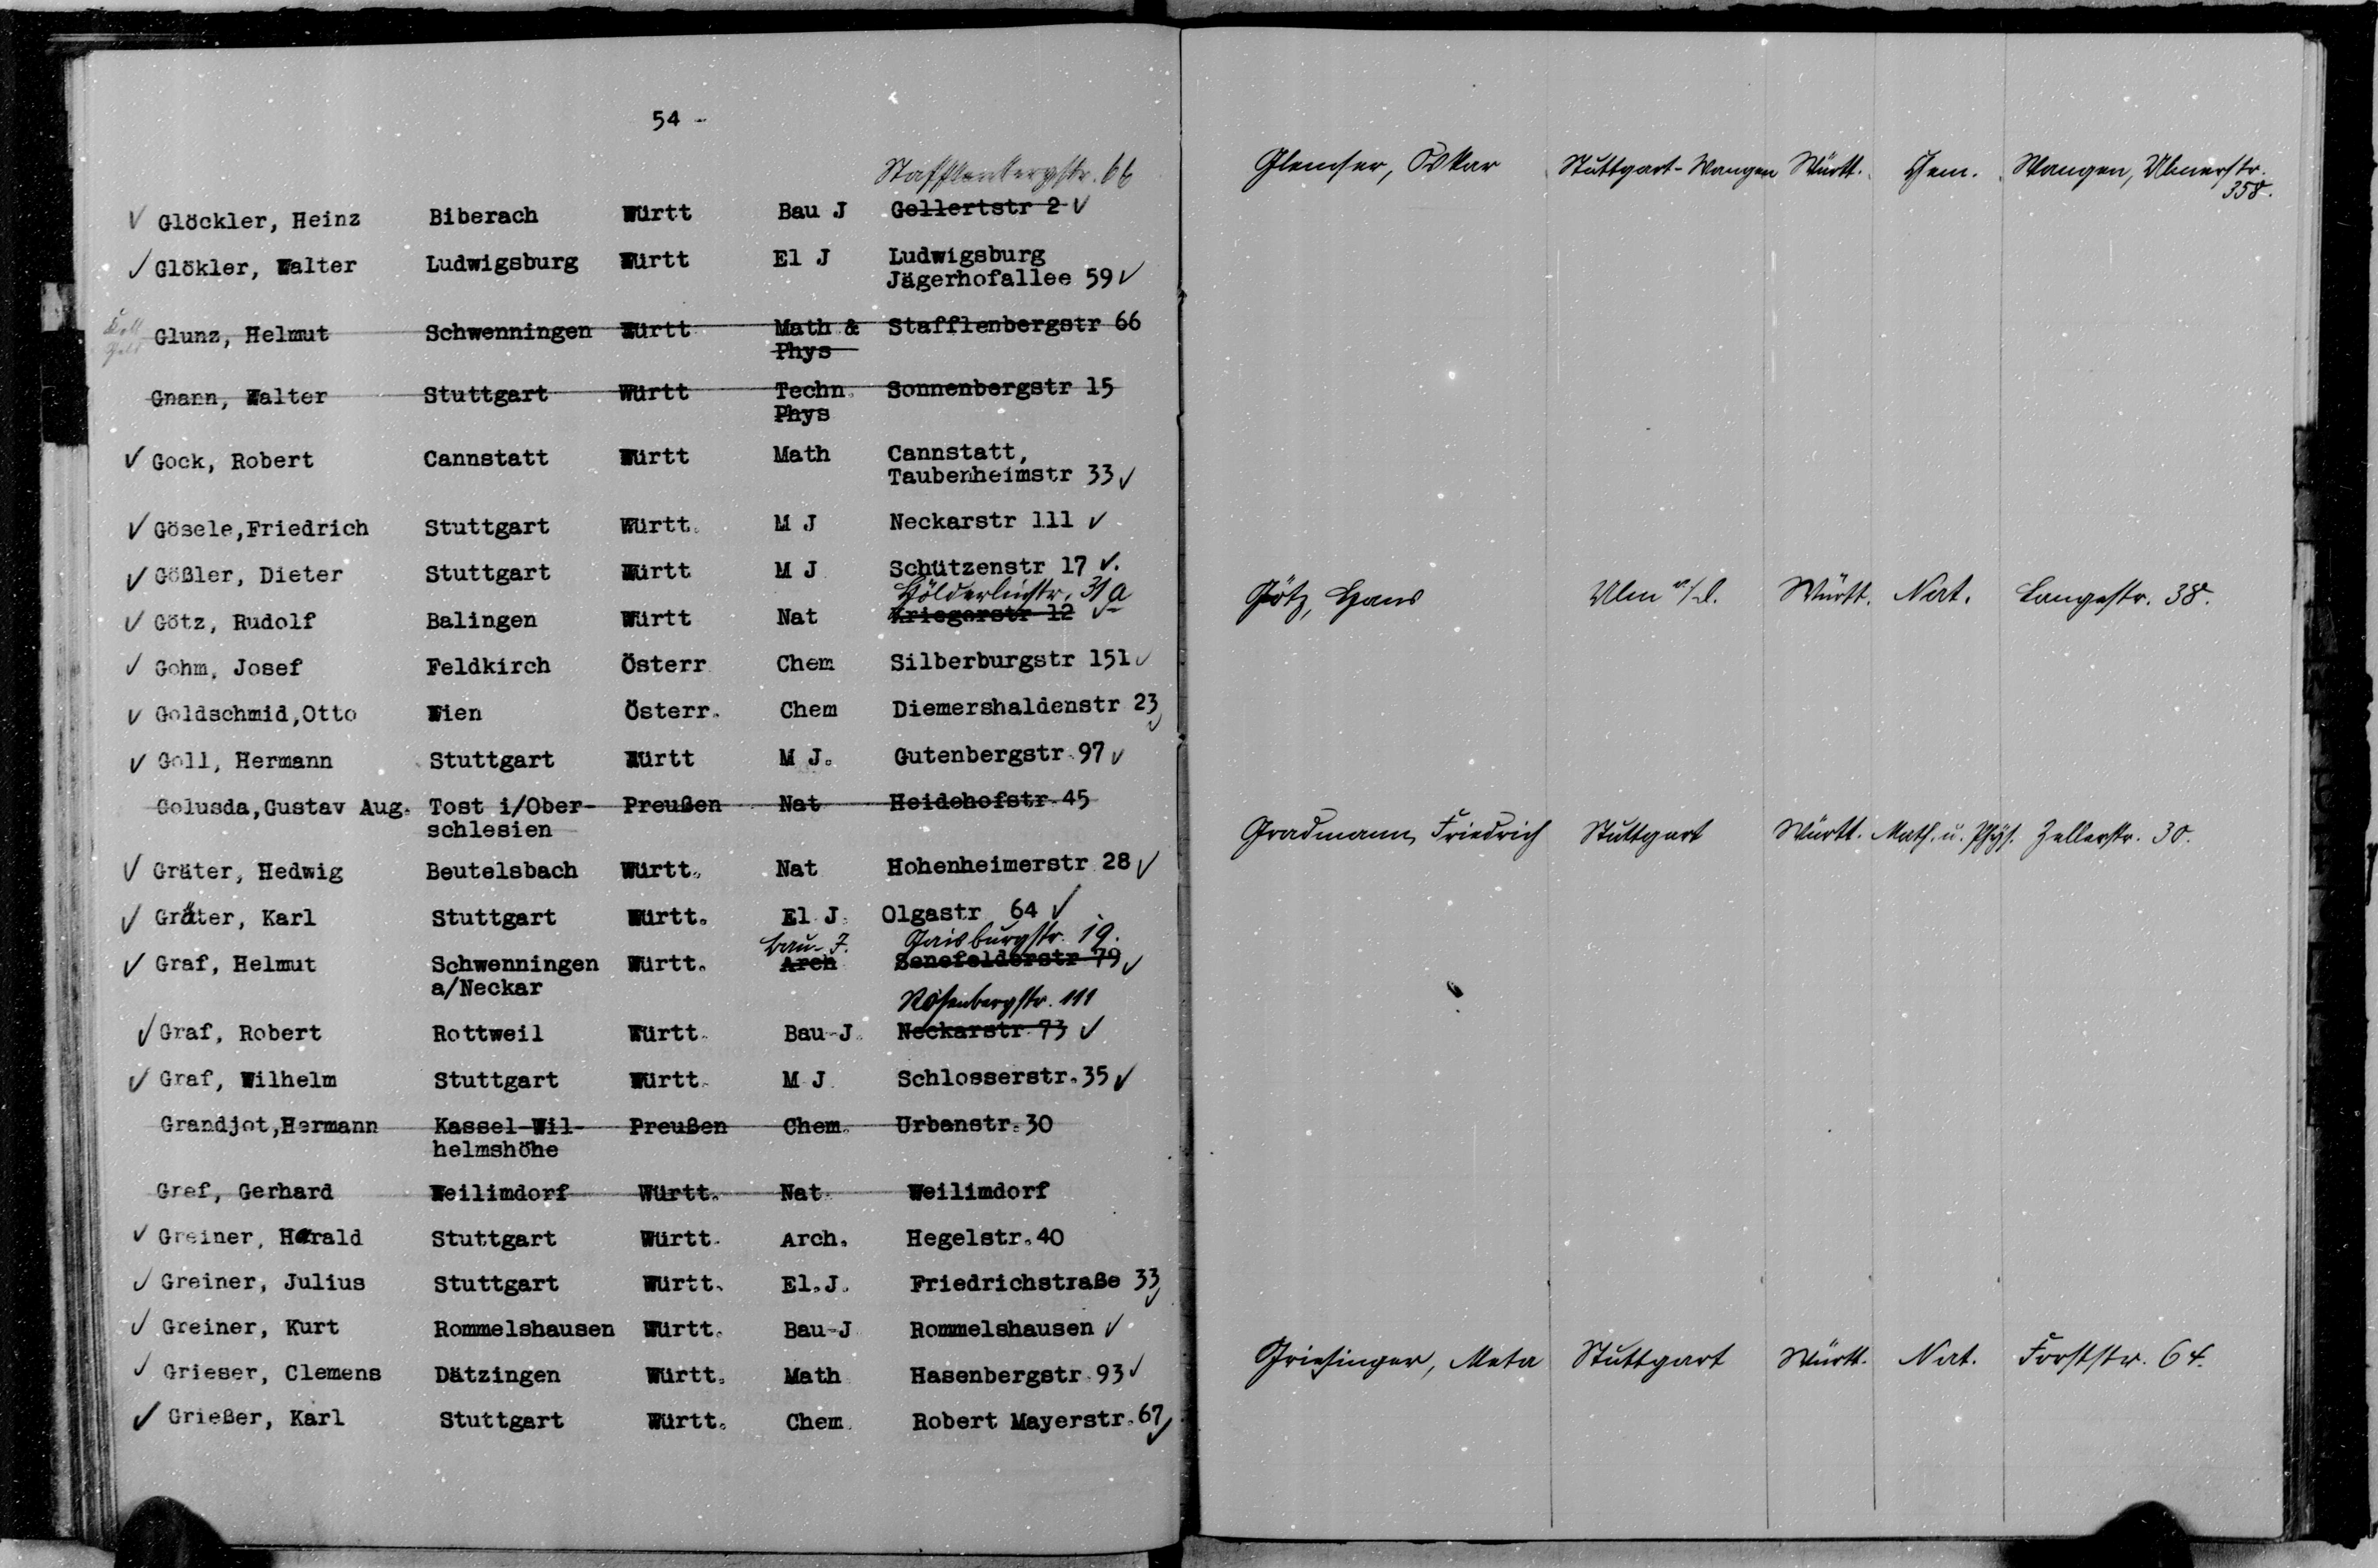 54 -
Stafflenbergstr. 66
✓ Glöckler, Heinz Biberach Württ Bau J Gellertstr 2 ✓
✓ Glökler, Walter Ludwigsburg Württ El J Ludwigsburg
Jägerhofallee 59 ✓
Glunz, Helmut Schwenningen Württ Math & Stafflenbergstr 66
Phys
Gnann, Walter Stuttgart Württ Techn. Sonnenbergstr 15
Phys
✓ Gock, Robert Cannstatt Württ Math Cannstatt,
Taubenheimstr 33 ✓
✓ Gösele,Friedrich Stuttgart Württ. M J Neckarstr 111 ✓
✓ Gößler, Dieter Stuttgart Württ M J Schützenstr 17 ✓.
Hölderlinstr. 31 a
✓ Götz, Rudolf Balingen Württ Nat Kriegerstr 12 ✓
✓ Gohm, Josef Feldkirch Österr Chem Silberburgstr 151 ✓
✓ Goldschmid,Otto Wien Österr. Chem Diemershaldenstr 23 ✓
✓ Goll, Hermann Stuttgart Württ M J. Gutenbergstr. 97 ✓
Golusda,Gustav Aug. Tost i/Ober- Preußen Nat Heidehofstr. 45
schlesien
✓ Gräter, Hedwig Beutelsbach Württ. Nat Hohenheimerstr 28 ✓
✓ Gräter, Karl Stuttgart Württ. El J. Olgastr 64 ✓
Bau-J. Gaisburgstr. 19.
✓ Graf, Helmut Schwenningen Württ. Arch Senefelderstr 79 ✓
a/Neckar
Rosenbergstr. 111
✓ Graf, Robert Rottweil Württ. Bau-J. Neckarstr. 73 ✓
✓ Graf, Wilhelm Stuttgart Württ. M J. Schlosserstr. 35 ✓
Grandjot,Hermann Kassel-Wil- Preußen Chem. Urbanstr. 30
helmshöhe
Gref, Gerhard Weilimdorf Württ. Nat. Weilimdorf
✓ Greiner, Harald Stuttgart Württ. Arch. Hegelstr. 40
✓ Greiner, Julius Stuttgart Württ. El.J. Friedrichstraße 33 ✓
✓ Greiner, Kurt Rommelshausen Württ. Bau-J Rommelshausen ✓
✓ Grieser, Clemens Dätzingen Württ. Math Hasenbergstr. 93 ✓
✓ Grießer, Karl Stuttgart Württ. Chem. Robert Mayerstr. 67 ✓
Glemser, Oskar Stuttgart-Wangen Württ. Chem. Wangen, Ulmerstr.
358.
Götz, Hans Ulm a/D. Württ. Nat. Langestr. 38.
Gradmann, Friedrich Stuttgart Württ. Math. u. Phys. Zellerstr. 30.
Griesinger, Meta Stuttgart Württ. Nat. Forststr. 64.